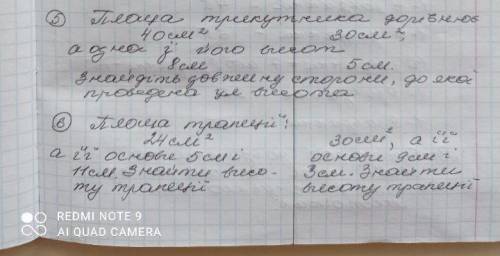 ⑤ Площа трикутника дорівнює
40см² 30см²,
а одна з його висот
8см 5см.
Знайдіть довжину сторони, до якої
проведена ця висота
⑥ Площа трапеції:
24см² 30см², а її
а її основи 5см і основи 9см і
11см. Знайти висо- 3см. Знайти
ту трапеції висоту трапеції
REDMI NOTE 9
AI QUAD CAMERA